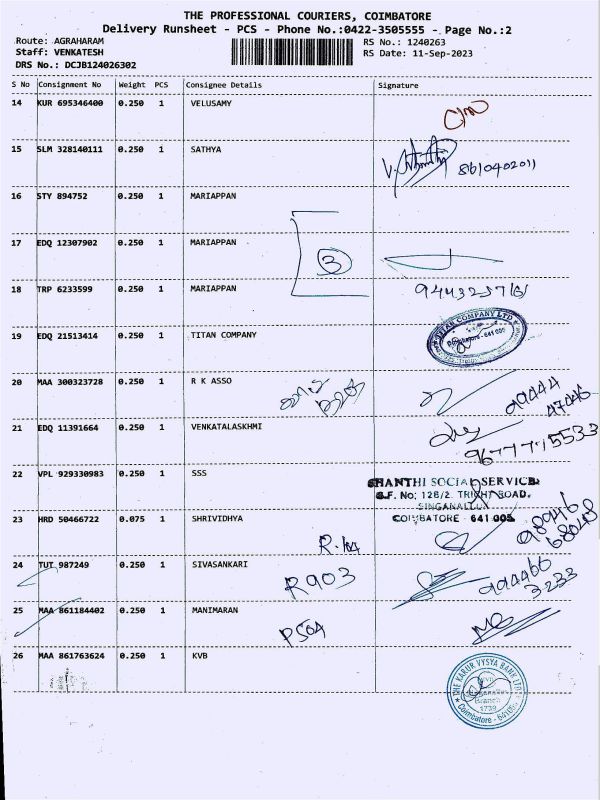 THE PROFESSIONAL COURIERS, COIMBATORE
Delivery Runsheet - PCS - Phone No.:0422-3505555 - Page No.:2
Route: AGRAHARAM RS No.: 1240263
Staff: VENKATESH RS Date: 11-Sep-2023
DRS No.: DCJB124026302
S No Consignment No Weight PCS Consignee Details Signature
14 KUR 695346400 0.250 1 VELUSAMY
15 SLM 328140111 0.250 1 SATHYA
8610402011
16 STY 894752 0.250 1 MARIAPPAN
17 EDQ 12307902 0.250 1 MARIAPPAN
3
18 TRP 6233599 0.250 1 MARIAPPAN
19 EDQ 21513414 0.250 1 TITAN COMPANY
TITAN COMPANY LTD
Coimbatore - 641 005
20 MAA 300323728 0.250 1 R K ASSO
99444
47046
21 EDQ 11391664 0.250 1 VENKATALASKHMI
9677775533
22 VPL 929330983 0.250 1 SSS
SHANTHI SOCIAL SERVICE
S.F. No: 128/2. TRICHY ROAD.
SINGANALLUR
COIMBATORE - 641 005
23 HRD 50466722 0.075 1 SHRIVIDHYA
98946
68048
24 TUT 987249 0.250 1 SIVASANKARI
R903
994466
3233
25 MAA 861184402 0.250 1 MANIMARAN
P504
26 MAA 861763624 0.250 1 KVB
THE KARUR VYSYA BANK LTD
Branch
1739
Coimbatore - 641005